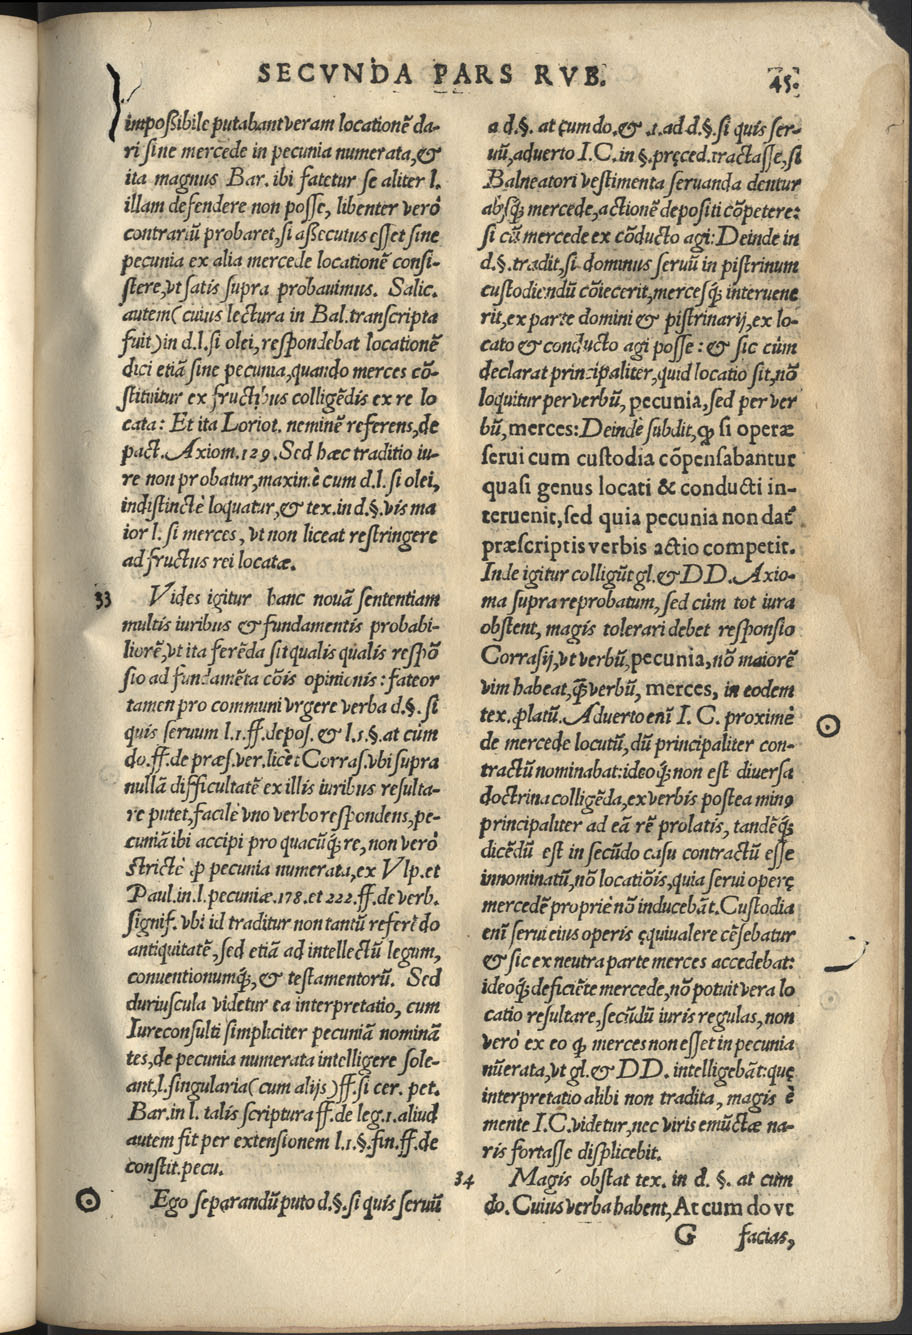 SECVNDA PARS RVB.
45.
impoßibile putabant veram locationẽ da-
ri sine mercede in pecunia numerata, &
ita magnus Bar. ibi fatetur se aliter l.
illam defendere non posse, libenter verò
contrariũ probaret, si aßecutus esset sine
pecunia ex alia mercede locationẽ consi-
stere, vt satis supra probauimus. Salic.
autem (cuius lectura in Bal. transcripta
fuit) in d. l. si olei, respondebat locationẽ
dici etiã sine pecunia, quando merces cõ-
stituitur ex fructibus colligẽdis ex re lo
cata: Et ita Loriot. neminẽ referens, de
pact. Axiom. 129. Sed hæc traditio iu-
re non probatur, maximè cum d. l. si olei,
indistinctè loquatur, & tex. in d. §. vis ma
ior l. si merces, vt non liceat restringere
ad fructus rei locatæ.
33 Vides igitur hanc nouã sententiam
multis iuribus & fundamentis probabi-
liorẽ, vt ita ferẽda sit qualis qualis respõ
sio ad fundamẽta cõis opinionis: fateor
tamen pro communi vrgere verba d. §. si
quis seruum l. 1. ff. depos. & l. 1. §. at cùm
do. ff. de præs. ver. licèt Corras. vbi supra
nullã difficultatẽ ex illis iuribus resulta-
re putet, facilè vno verbo respondens, pe-
cuniã ibi accipi pro quacũq́; re, non verò
strictè ꝓ pecunia numerata, ex Vlp. et
Paul. in l. pecuniæ. 178. et 222. ff. de verb.
signif. vbi id traditur non tantũ referẽdo
antiquitatẽ, sed etiã ad intellectũ legum,
conuentionumq́;, & testamentorũ. Sed
duriuscula videtur ea interpretatio, cum
Iureconsulti simpliciter pecuniã nominã
tes, de pecunia numerata intelligere sole-
ant, l. singularia (cum alijs) ff. si cer. pet.
Bar. in l. talis scriptura ff. de leg. 1. aliud
autem fit per extensionem l. 1. §. fin. ff. de
constit. pecu.
Ego separandũ puto d. §. si quis seruũ
a d. §. at cum do. & .1. ad d. §. si quis ser-
uũ, aduerto I. C. in §. pręced. tractasse, si
Balneatori vestimenta seruanda dentur
absq́; mercede, actionẽ depositi cõpetere:
si cũ mercede ex cõducto agi: Deinde in
d. §. tradit, si dominus seruũ in pistrinum
custodiendũ cõiecerit, mercesq́; interuene
rit, ex parte domini & pistrinarij, ex lo-
cato & conducto agi posse: & sic cùm
declarat principaliter, quid locatio sit, nõ
loquitur per verbũ, pecunia, sed per ver
bũ, merces: Deindè subdit, ꝙ si operæ
serui cum custodia cõpensabantur
quasi genus locati & conducti in-
teruenit, sed quia pecunia non dat᷑
præscriptis verbis actio competit.
Inde igitur colligũt gl. & DD. Axio-
ma supra reprobatum, sed cùm tot iura
obstent, magis tolerari debet responsio
Corrasij, vt verbũ, pecunia, nõ maiorẽ
vim habeat, ꝗ̃ verbũ, merces, in eodem
tex. ꝓlatũ. Aduerto enĩ I. C. proximè
de mercede locutũ, dũ principaliter con-
tractũ nominabat: ideoq́; non est diuersa
doctrina colligẽda, ex verbis postea minꝰ
principaliter ad eã rẽ prolatis, tandẽq́;
dicẽdũ est in secũdo casu contractũ esse
innominatũ, nõ locatiõis, quia serui operę
mercedẽ propriè nõ inducebãt. Custodia
enĩ serui eius operis ęquiualere cẽsebatur
& sic ex neutra parte merces accedebat:
ideoq́; deficiẽte mercede, nõ potuit vera lo
catio resultare, secũdũ iuris regulas, non
verò ex eo ꝙ merces non esset in pecunia
nũerata, vt gl. & DD. intelligebãt: quę
interpretatio alibi non tradita, magis è
mente I. C. videtur, nec viris emũctæ na-
ris fortasse displicebit.
34 Magis obstat tex. in d. §. at cum
do. Cuius verba habent, At cum do vt
G facias,